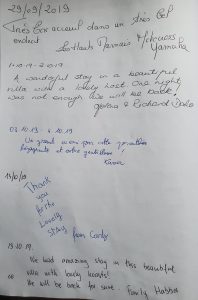 29/09/2019
Très bon accueil dans un très bel
endroit
1-10-19 - 2.10.19
A wonderful stay in a beautiful
villa with a lovely host. One night
was not enough. We will be back!
& Richard
03.10.19 - 4.10.19
Un grand merci pour votre
et votre gentillesse!
Thank
you
for the
Lovely
Stay from
19.10.19.
We had amazing stay in this beautiful
villa with lovely hosts!
We will be back for sure. Family